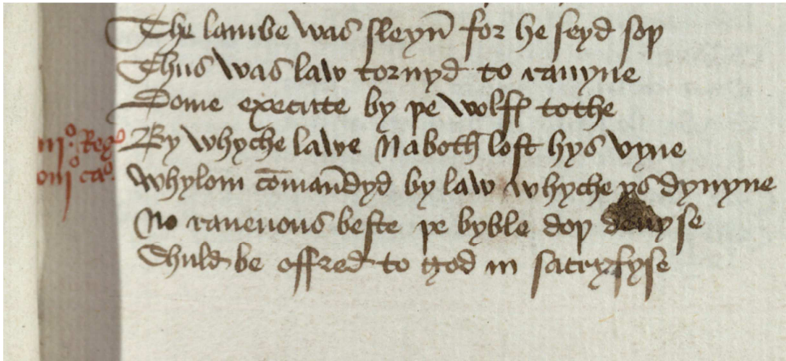 The lambe was sleyn̄ for he seyd soþ
Thus was law tornyd to rauyne
Dome execute by þe wolff tothe
iijº Regͦ By whyche lawe Naboth lost hys vyne
caº. Whylom cōmandyd by law whyche ys dyuyne
No rauenous beste þe byble doþ deuyse
Shuld be offred to god in sacryfyse